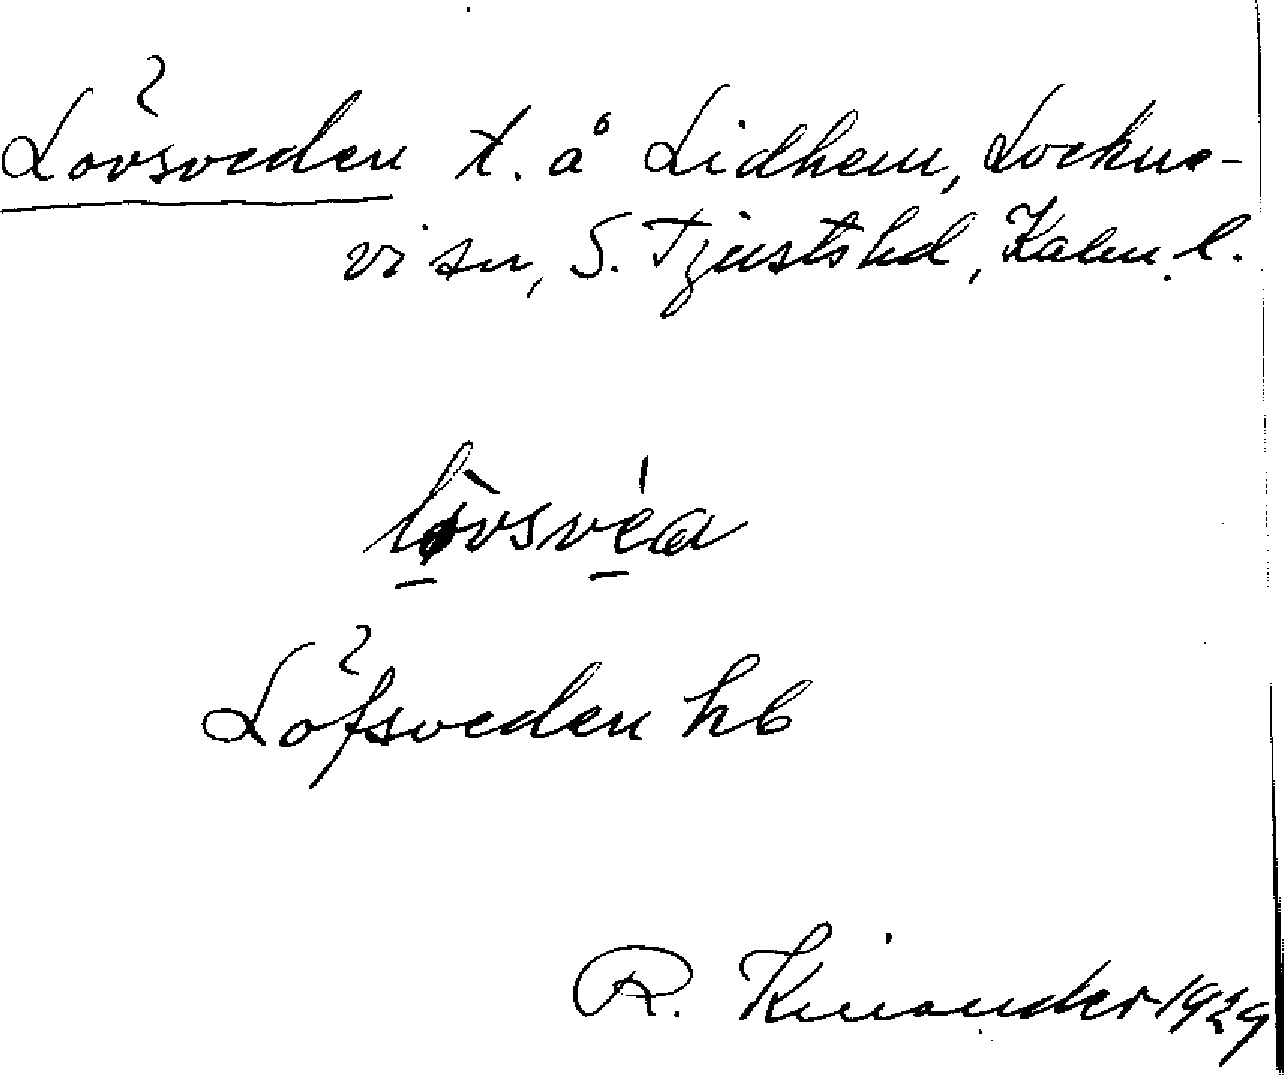 Lövsveden t. å Lidhem, Lockne-
vi sn, S. Tjusts hd, Kalm. l.
lövsvéa
Löfsveden hb
R. Kinander 1929